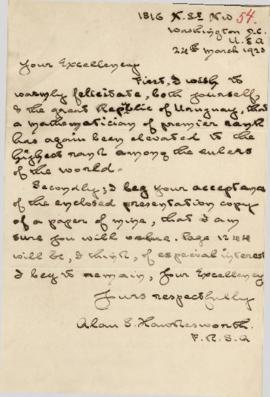 1816 N. St. N.W. 54.
Washington D.C.
U.S.A
22th March 1923
Your Excellency
First, I wish to
warmly felicitate, both yourself
& the great Republic of Uruguay, that
a mathematician of premier rank
has again been elevated to the
highest rank among the rulers
of the world.
Secondly; I beg your acceptance
of the enclosed presentation copy
of a paper of mine, that I am
sure you will value. Page
will be, I think, of especial interest
I beg to remain, your Excellency
Yours respectfully
Alan S. Hawkesworth.
F. R. S. A